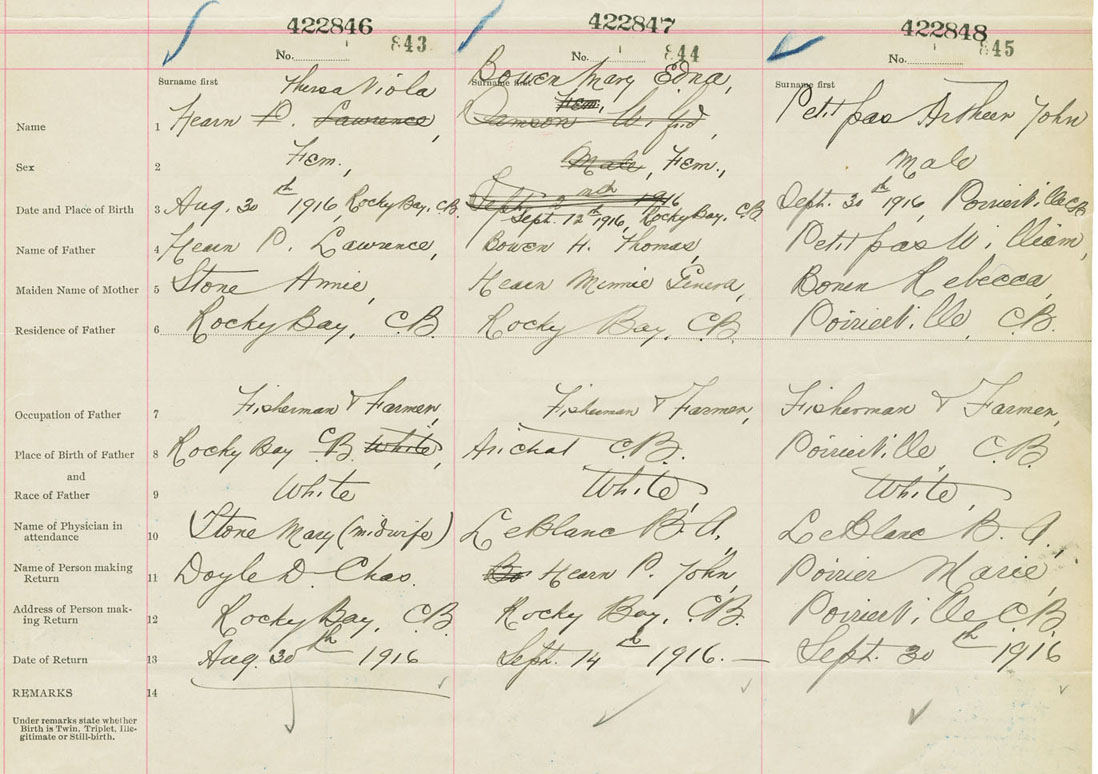 422846 422847 422848
No. 843 No. 844 No. 845
Surname first Surname first Surname first
Thersa Viola Bowen Mary Edna,
Name 1 Hearn P. Lawrence, Fem, Petitpas Artheer John
Sex 2 Fem, Male, Fem., Male
Sept. 1916
Date and Place of Birth 3 Aug. 30th 1916, Rocky Bay, C.B. Sept. 12th 1916, Rocky Bay, C.B. Sept. 30th 1916, Poirierville C.B.
Name of Father 4 Hearn P. Lawrence, Bowen H. Thomas, Petitpas William,
Maiden Name of Mother 5 Stone Annie, Hearn Minnie Geneva, Rebecca,
Residence of Father 6 Rocky Bay, C.B. Rocky Bay, C.B. Poirierville, C.B.
Occupation of Father 7 Fisherman & Farmer, Fisherman & Farmer, Fisherman & Farmer,
Place of Birth of Father 8 Rocky Bay C.B. White, Arichat C.B. Poirierville, C.B.
and
Race of Father 9 White White, White,
Name of Physician in
attendance 10 Stone Mary (midwife) LeBlanc B. A., LeBlanc B. A.,
Name of Person making
Return 11 Doyle D. Chas. Bo Hearn P. John, Poirier Marie,
Address of Person mak-
ing Return 12 Rocky Bay, C.B. Rocky Bay, C.B. Poirierville C.B.
Date of Return 13 Aug. 30th 1916 Sept. 14th 1916. — Sept. 30th 1916
REMARKS 14
Under remarks state whether
Birth is Twin, Triplet, Ille-
gitimate or Still-birth.